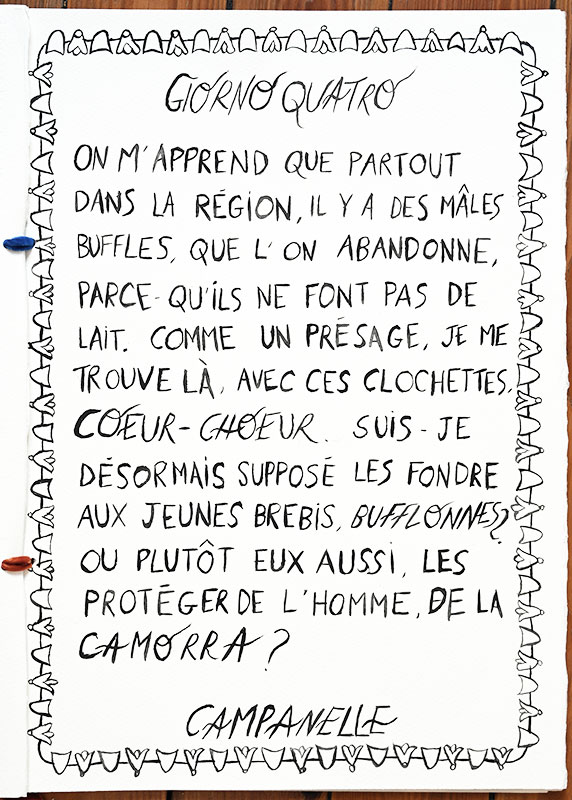 GIORNO QUATRO
ON M'APPREND QUE PARTOUT
DANS LA RÉGION, IL Y A DES MÂLES
BUFFLES, QUE L'ON ABANDONNE,
PARCE-QU'ILS NE FONT PAS DE
LAIT. COMME UN PRÉSAGE, JE ME
TROUVE LÀ, AVEC CES CLOCHETTES.
COEUR-CHOEUR. SUIS-JE
DÉSORMAIS SUPPOSÉ LES FONDRE
AUX JEUNES BREBIS, BUFFLONNES?
OU PLUTÔT EUX AUSSI, LES
PROTÉGER DE L'HOMME, DE LA
CAMORRA?
CAMPANELLE